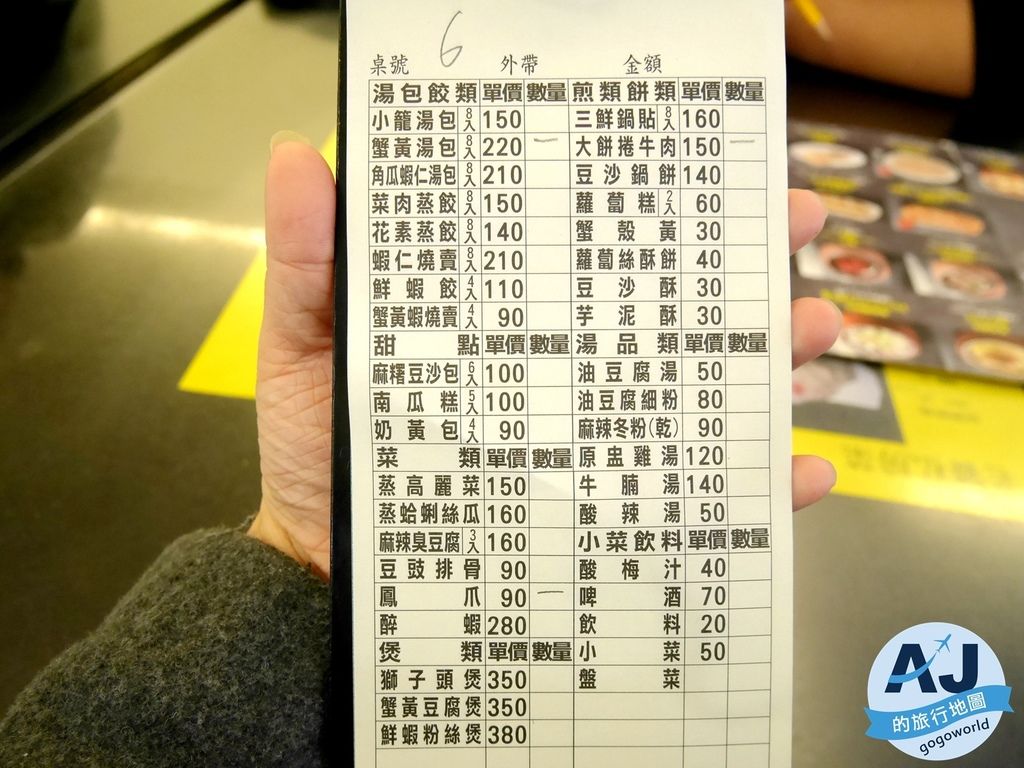 6
桌號 外帶 金額
湯包餃類 單價 數量 煎類餅類 單價 數量
小籠湯包 8入 150 三鮮鍋貼 8入 160
蟹黃湯包 8入 220 一 大餅捲牛肉 150 一
角瓜蝦仁湯包 8入 210 豆沙鍋餅 140
菜肉蒸餃 8入 150 蘿蔔糕 2入 60
花素蒸餃 8入 140 蟹殼黃 30
蝦仁燒賣 8入 210 蘿蔔絲酥餅 40
鮮蝦餃 4入 110 豆沙酥 30
蟹黃蝦燒賣 4入 90 芋泥酥 30
甜點 單價 數量 湯品類 單價 數量
麻糬豆沙包 6入 100 油豆腐湯 50
南瓜糕 5入 100 油豆腐細粉 80
奶黃包 4入 90 麻辣冬粉(乾) 90
菜類 單價 數量 原盅雞湯 120
蒸高麗菜 150 牛腩湯 140
蒸蛤蜊絲瓜 160 酸辣湯 50
麻辣臭豆腐 3入 160 小菜飲料 單價 數量
豆豉排骨 90 酸梅汁 40
鳳爪 90 一 啤酒 70
醉蝦 280 飲料 20
煲類 單價 數量 小菜 50
獅子頭煲 350 盤菜
蟹黃豆腐煲 350
鮮蝦粉絲煲 380
AJ
的旅行地圖
gogoworld